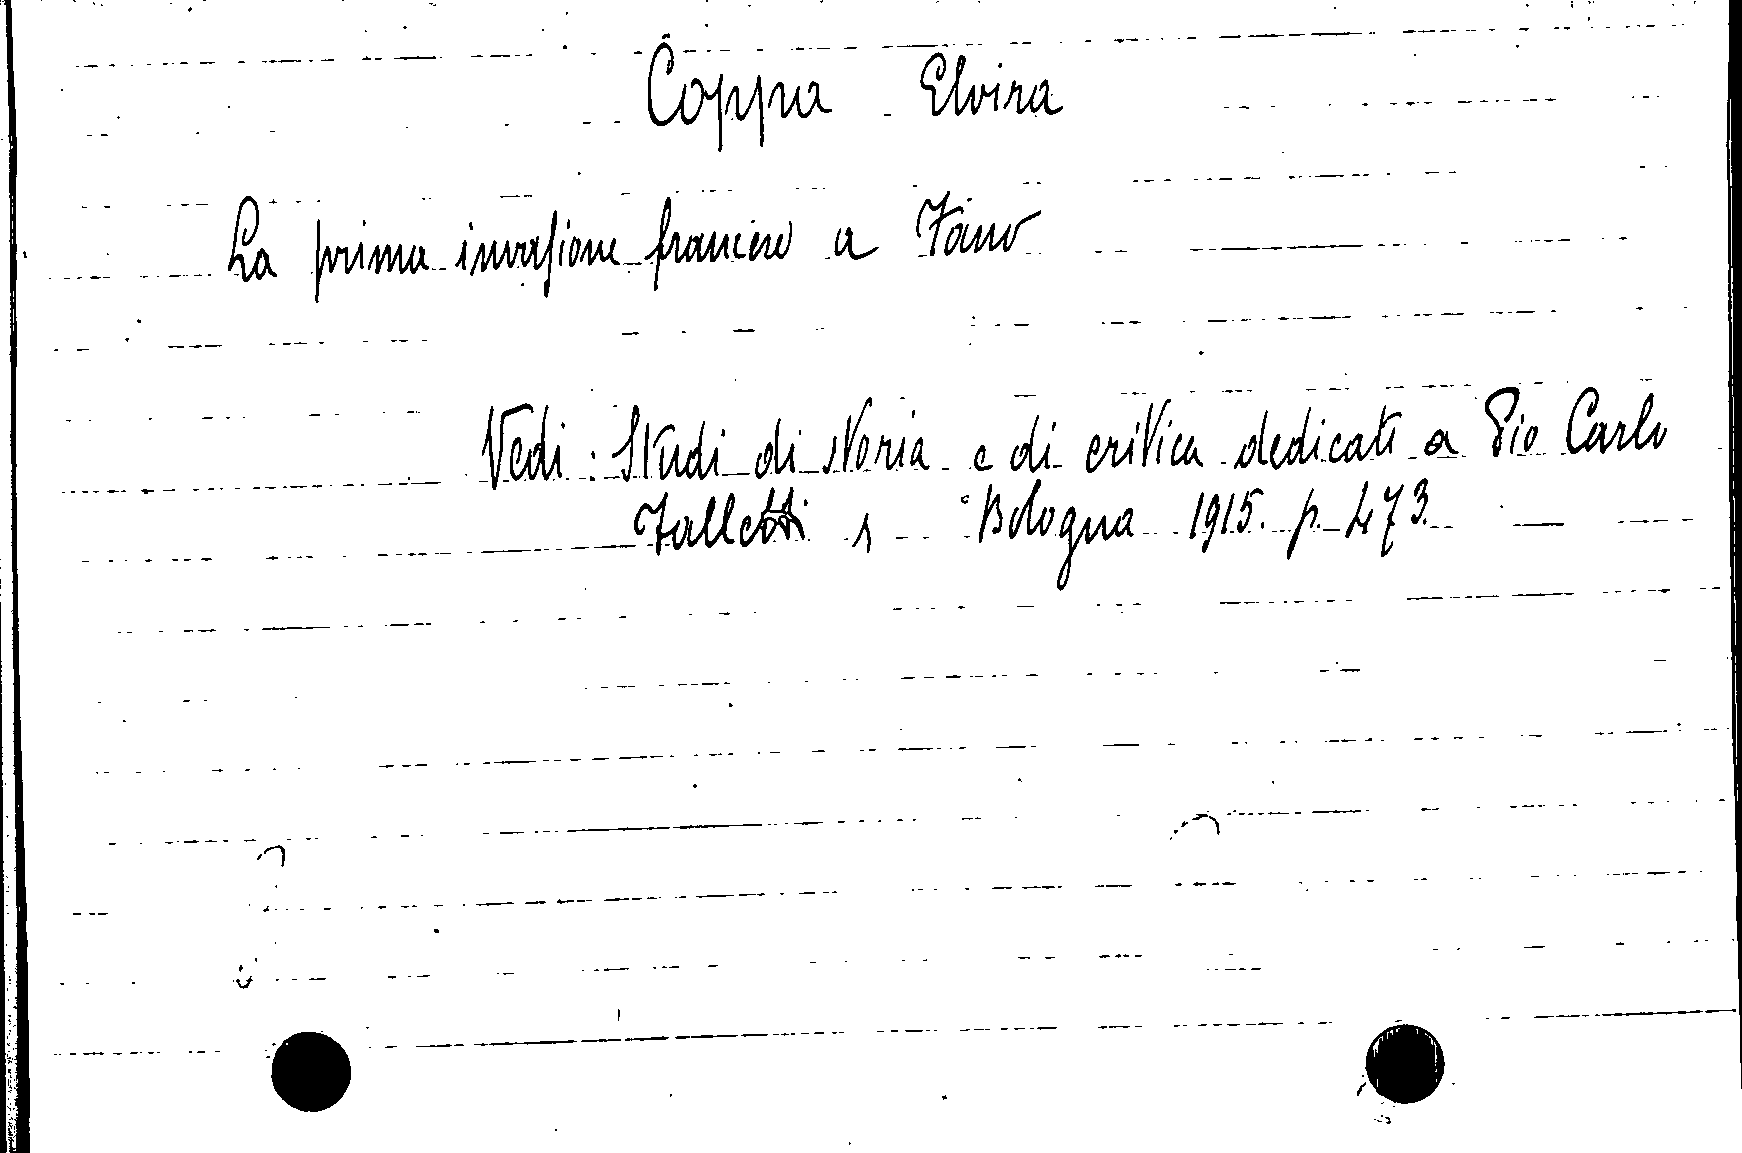 Coppa Elvira
La prima invasione francese a Fano
Vedi: Studi di storia e di critica dedicati a Pio Carlo
Falletti, Bologna 1915. p. 473.